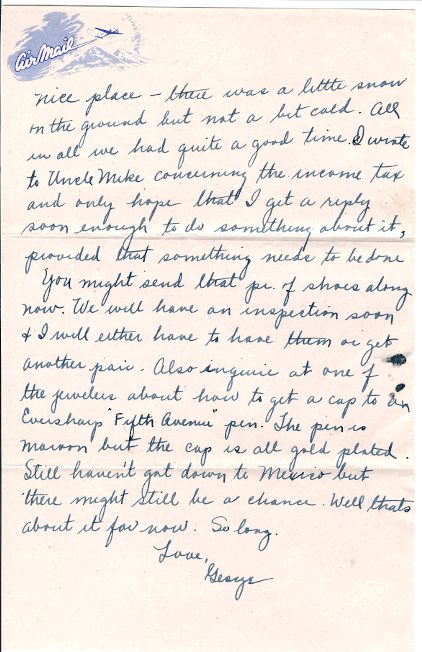 Air Mail
nice place - there was a little snow
on the ground but not a bit cold. All
in all we had quite a good time. I wrote
to Uncle Mike concerning the income tax
and only hope that I get a reply
soon enough to do something about it,
provided that something needs to be done
You might send that pr. of shoes along
now. We will have an inspection soon
& I will either have to have them or get
another pair. Also inquire at one of
the jewelers about how to get a cap to an
Eversharp "Fifth Avenue" pen. The pen is
maroon but the cap is all gold plated.
Still haven't got down to Mexico but
there might still be a chance. Well thats
about it for now. So long.
Love,
George